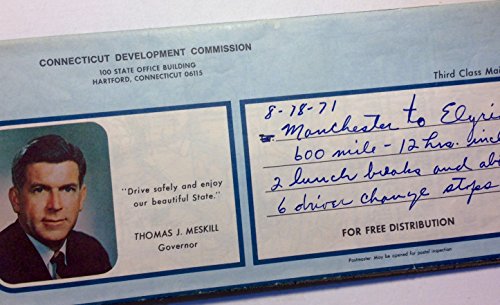 CONNECTICUT DEVELOPMENT COMMISSION
100 STATE OFFICE BUILDING
HARTFORD, CONNECTICUT 06115
Third Class Mai
"Drive safely and enjoy
our beautiful State."
THOMAS J. MESKILL
Governor
8-18-71
Manchester to Elyri
600 mile - 12 hrs. incl
2 lunch breaks and ab
6 driver change stops
FOR FREE DISTRIBUTION
Postmaster: May be opened for postal inspection